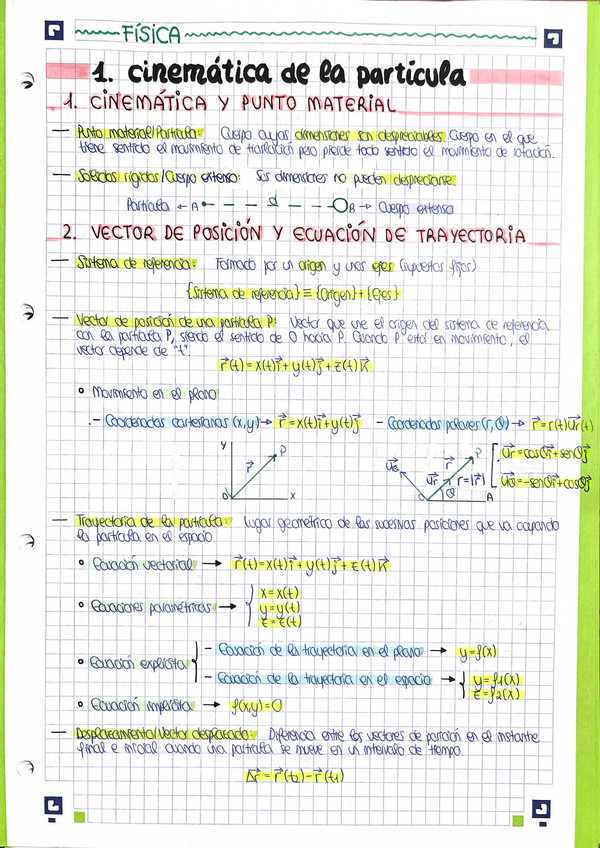 FÍSICA
1. cinemática de la partícula
1. CINEMÁTICA Y PUNTO MATERIAL
— Punto material/Partícula: Cuerpo cuyas dimensiones son despreciables. Cuerpo en el que
tiene sentido el movimiento de traslación pero pierde todo sentido el movimiento de rotación.
— Sólidos rígidos/Cuerpo extenso: Sus dimensiones no pueden despreciarse.
Partícula ← A d B → Cuerpo extenso
2. VECTOR DE POSICIÓN Y ECUACIÓN DE TRAYECTORIA
— Sistema de referencia: Formado por un origen y unos ejes (supuestos fijos)
{Sistema de referencia} ≡ {Origen} + {Ejes}
— Vector de posición de una partícula P: Vector que une el origen del sistema de referencia
con la partícula P, siendo el sentido de O hacia P. Cuando P está en movimiento, el
vector depende de "t".
r⃗(t) = x(t)i⃗ + y(t)j⃗ + z(t)k⃗
• Movimiento en el plano
- Coordenadas cartesianas (x,y) → r⃗ = x(t)i⃗ + y(t)j⃗ - Coordenadas polares (r, θ) → r⃗ = r(t)u⃗r(t)
y r⃗ P O x
u⃗θ u⃗r r⃗ P r=|r⃗| θ O A
u⃗r = cosθi⃗ + senθj⃗
u⃗θ = -senθi⃗ + cosθj⃗
— Trayectoria de la partícula: Lugar geométrico de las sucesivas posiciones que va ocupando
la partícula en el espacio.
• Ecuación vectorial → r⃗(t) = x(t)i⃗ + y(t)j⃗ + z(t)k⃗
• Ecuaciones paramétricas → { x = x(t)
y = y(t)
z = z(t)
• Ecuación explícita { - Ecuación de la trayectoria en el plano → y = f(x)
- Ecuación de la trayectoria en el espacio → { y = f1(x)
z = f2(x)
• Ecuación implícita → f(x,y) = 0
— Desplazamiento/Vector desplazado: Diferencia entre los vectores de posición en el instante
final e inicial cuando una partícula se mueve en un intervalo de tiempo.
Δr⃗ = r⃗(t2) - r⃗(t1)